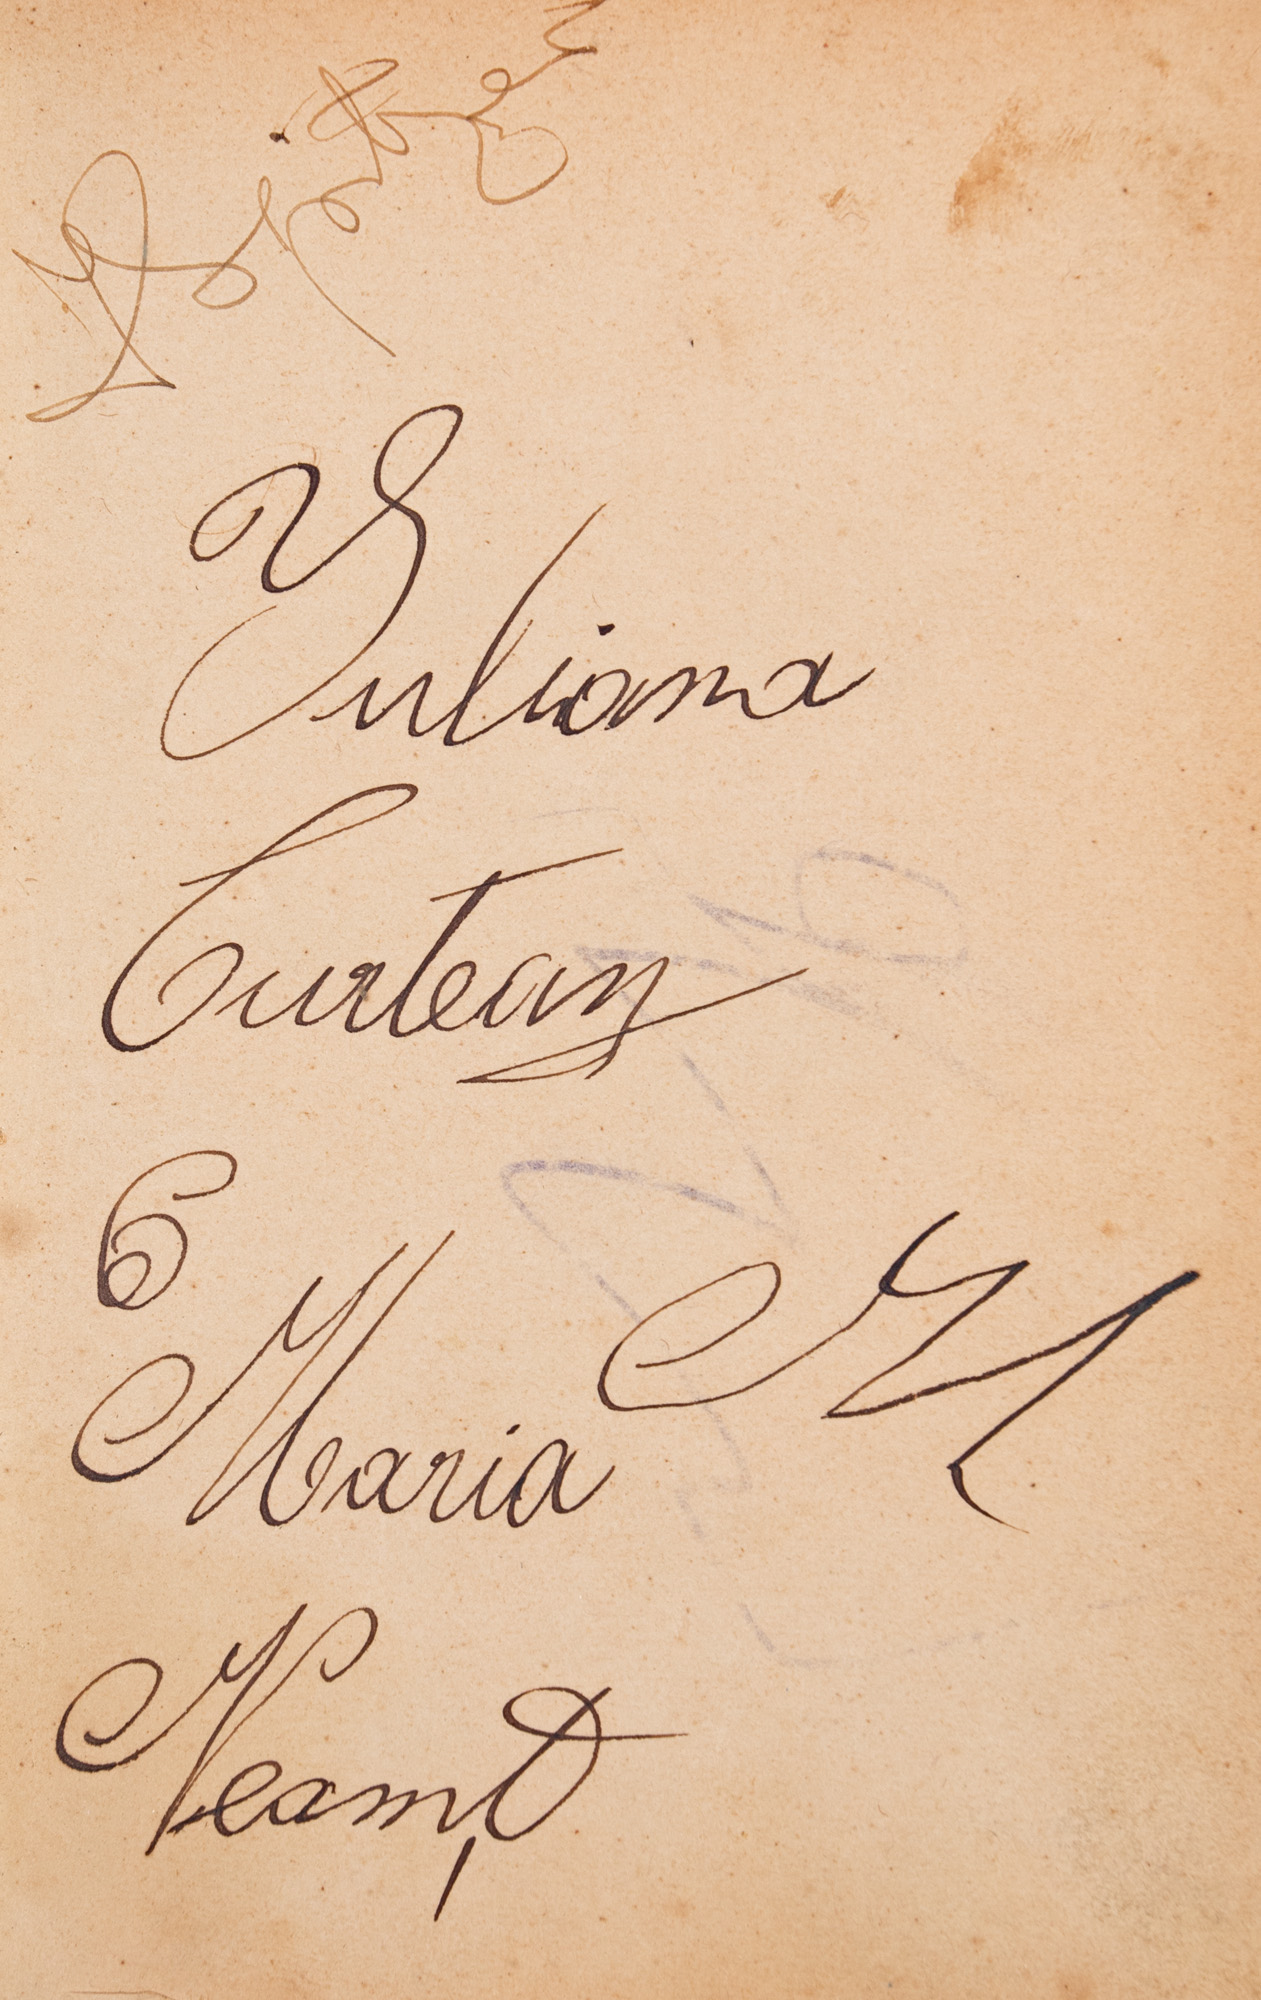 Iuliana
Curtean
6
Maria M
Neamț